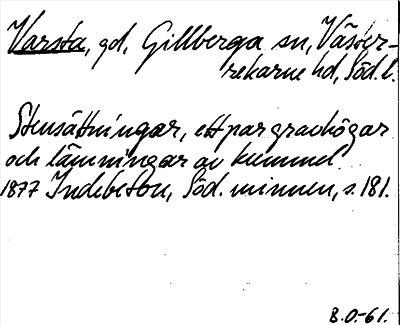 Varsta, gd, Gillberga sn, Väster-
rekarne hd, Söd. l.
Stensättningar, ett par gravhögar
och lämningar av kummel
1877 Indebetou, Söd. minnen, s. 181.
B.O.-61.